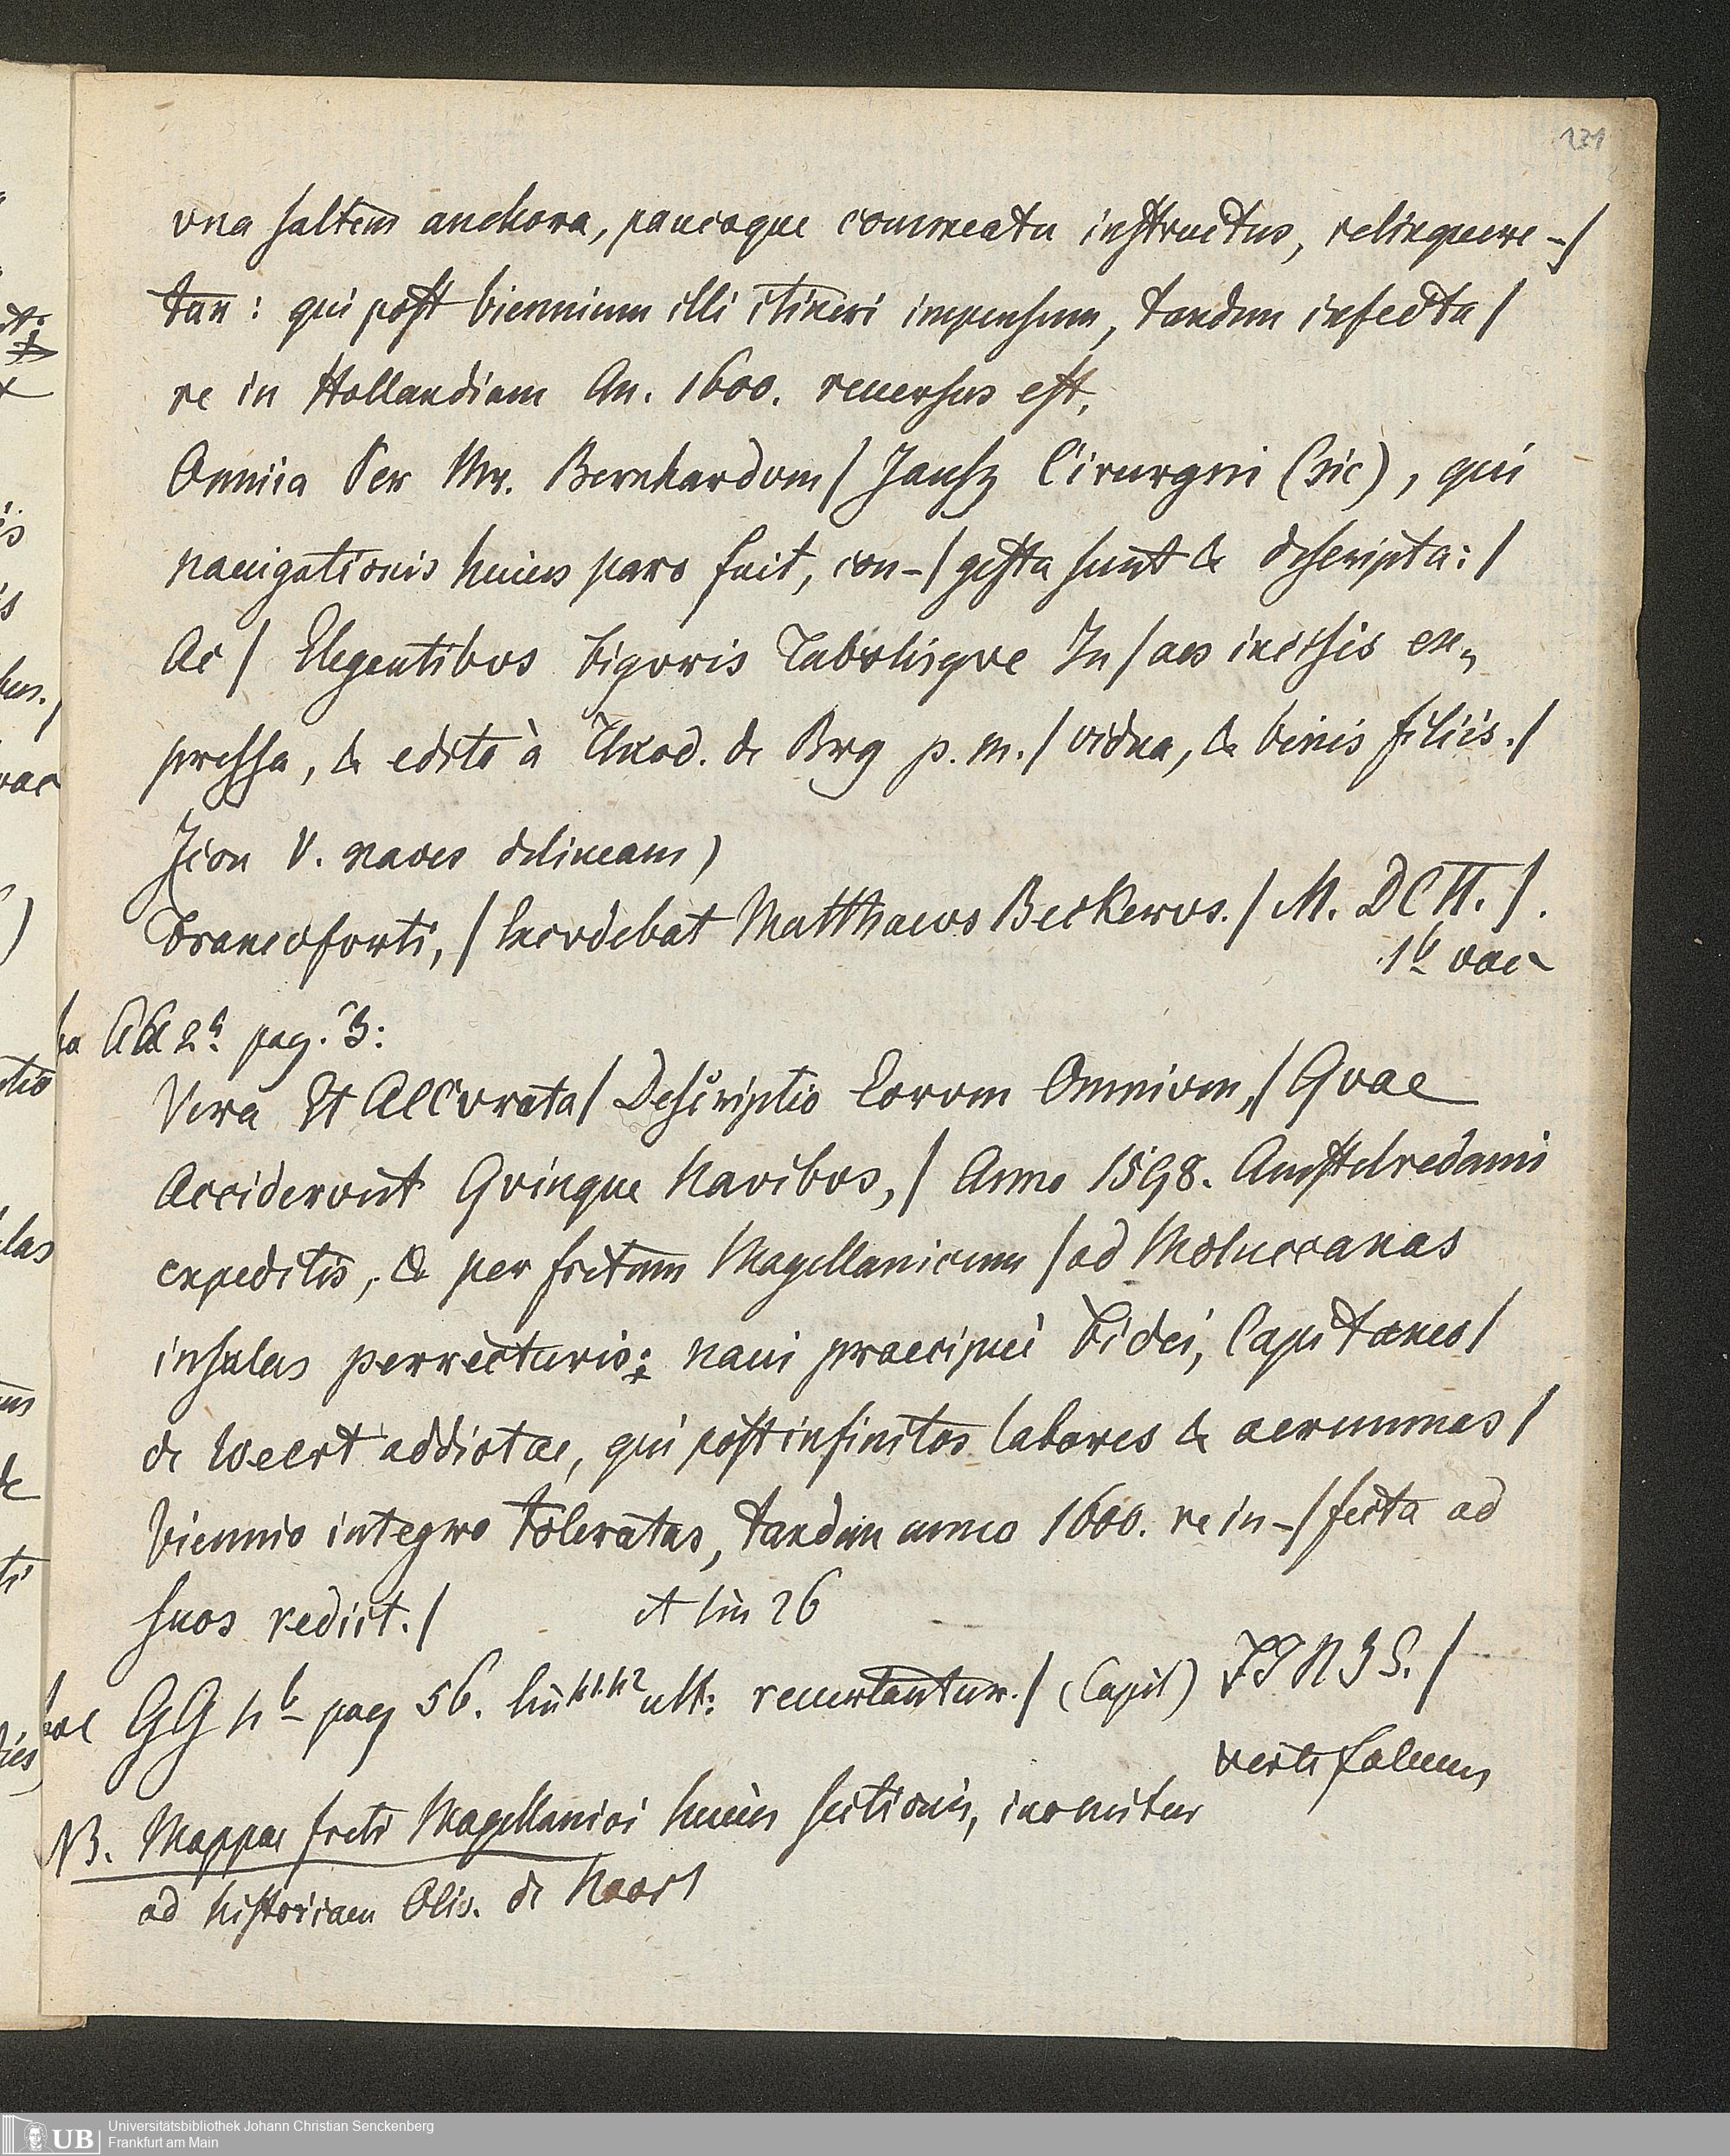 131
vna saltem anchora, paucoque commeatu instructus, relinquere-/
tur: qui post biennium illi itineri impensum, tandem infecta/
re in Hollandiam An. 1600. reuersus est,
Omnia Per Mr. Bernhardvm/ Jansz Cirurgni (sic), qui
nauigationis huius pars fuit, con-/gesta sunt & descripta:/
Ac/ Elegantibvs Figvris Tabvlisqve In/aes incisis ex„
pressa, & edita à Theod. de Bry p. m./ vidua, & binis filiis./
Icon V. naves delineans)
Francofvrti,/ Excvdebat Matthaeus Beckervs./ M. DCII./.
1b vac
AA 2a pag. 3:
Vera Et Accvrata/ Descriptio Eorvm Omnivm,/ Qvae
Acciderunt Qvinque Navibvs,/ Anno 1598. Amstelredami
expeditis, & per fretum Magellanicum/ad Moluccanas
insulas perrecturis: naui praecipuè Fidei, Capitaneo/
de Weert addictae, qui post infinitos labores & aerumnas/
biennio integro toleratas, tandem anno 1600. re in-/fecta ad
suos rediit./ et lin 26
GG 4b pag 56. lin ult: reuertantur./ (Capit) FINIS./
verte folium
NB. Mappa freti Magellanici huius sectionis, inomitur
ad historiam Oliv. de Noort
Universitätsbibliothek Johann Christian Senckenberg
Frankfurt am Main
UB